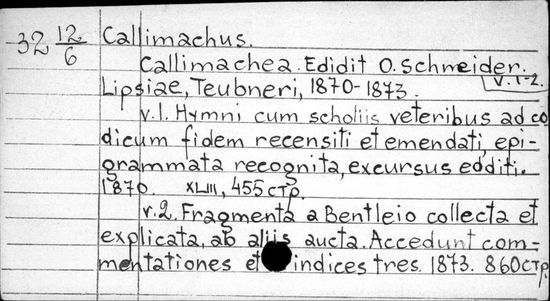 32 12/6 Callimachus.
Callimachea. Edidit O. Schneider.
V. 1-2.
Lipsiae, Teubneri, 1870-1873.
v.1. Hymni cum scholiis veteribus ad co
dicum fidem recensiti et emendati, epi-
grammata recognita, excursus edditi.
1870. XLIII, 455 стр.
v.2. Fragmenta a Bentleio collecta et
explicata, ab aliis aucta. Accedunt com-
mentationes et indices tres. 1873. 860 стр.